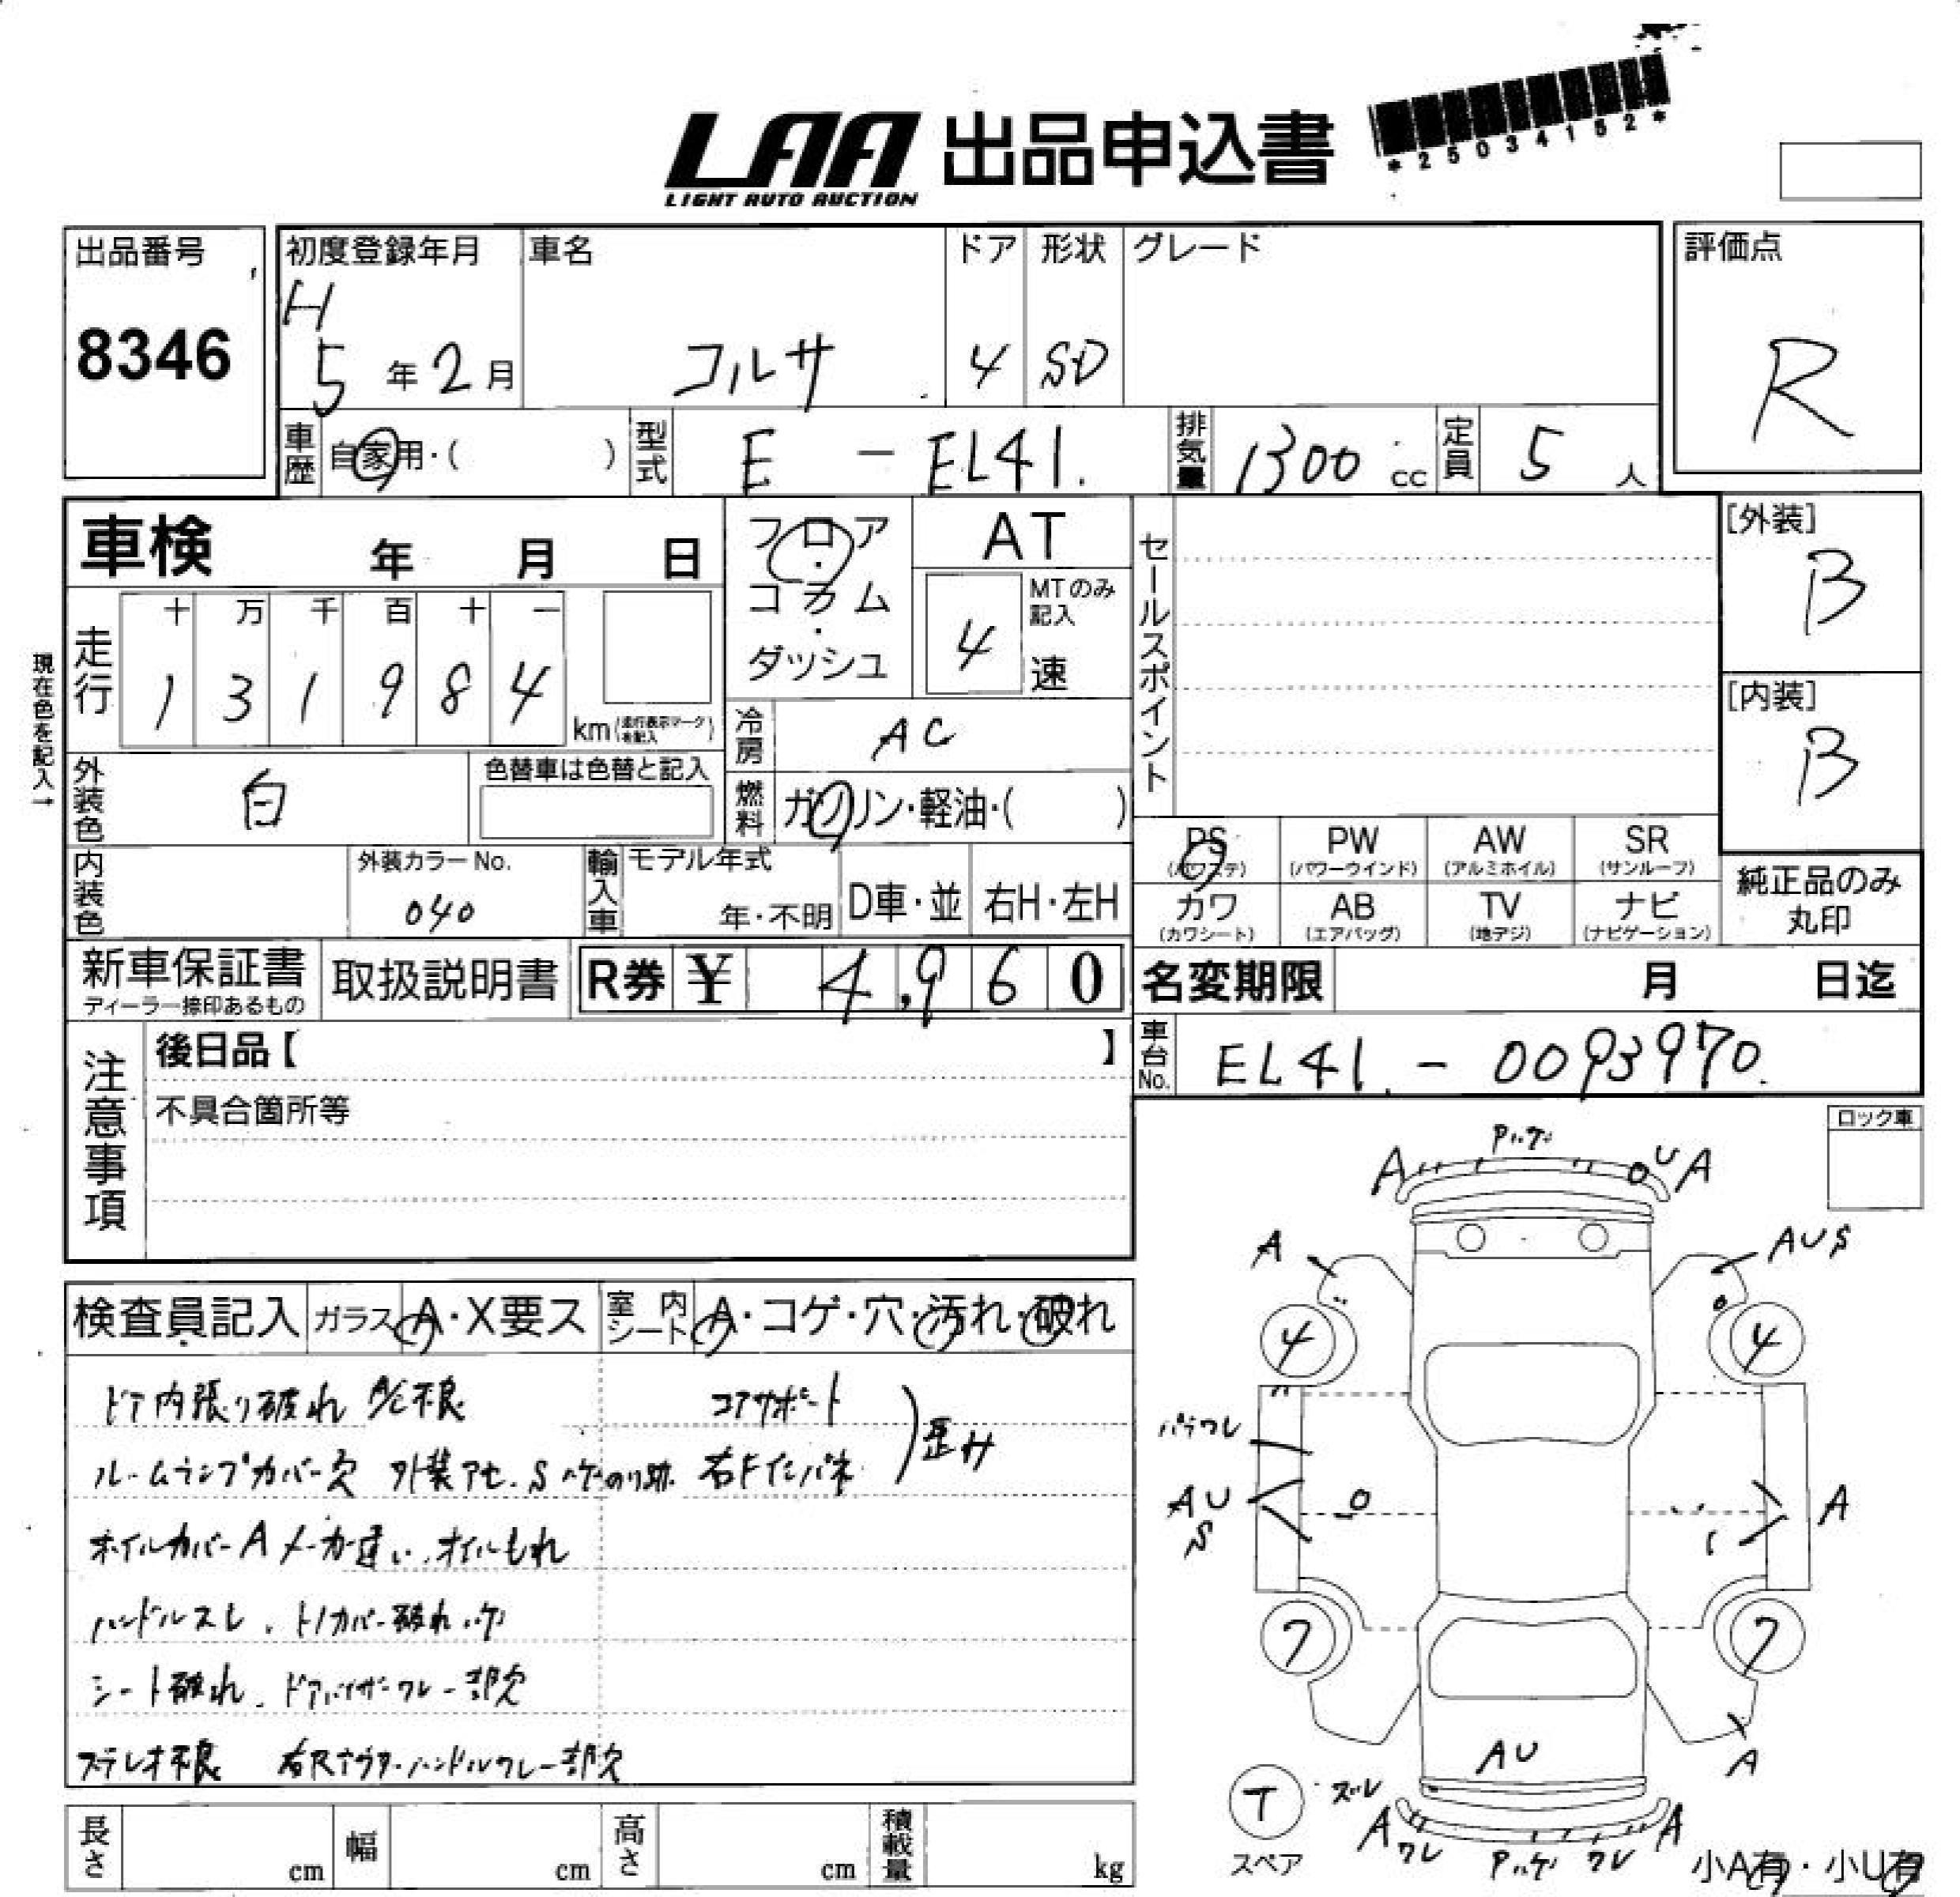 LAA 出品申込書
LIGHT AUTO AUCTION
*25034152*
出品番号
8346
初度登録年月
H
5年2月
車名
コルサ
ドア
4
形状
SD
グレード
評価点
R
車歴
自家用・( )
型式
E - EL41.
排気量
1300 cc
定員
5 人
車検 年 月 日
フロア
・
コラム
・
ダッシュ
AT
MTのみ
記入
4 速
セールスポイント
[外装]
B
[内装]
B
現在色を記入→
走行
十 万 千 百 十 一
1 3 1 9 8 4
km (走行表示マークを記入)
冷房
AC
外装色
白
色替車は色替と記入
燃料
ガソリン・軽油・( )
内装色
外装カラーNo.
040
輸入車
モデル年式
年・不明
D車・並
右H・左H
PS
(パワステ)
PW
(パワーウインド)
AW
(アルミホイル)
SR
(サンルーフ)
カワ
(カワシート)
AB
(エアバッグ)
TV
(地デジ)
ナビ
(ナビゲーション)
純正品のみ
丸印
新車保証書
ディーラー捺印あるもの
取扱説明書
R券 ¥ 4,960
名変期限 月 日迄
注意事項
後日品【 】
不具合箇所等
車台No.
EL41.-0093970.
ロック車
検査員記入
ガラス A・X要ス
室内シート A・コゲ・穴・汚れ・破れ
ドア内張り破れ A/C不良
コアサポート
ルームランプカバー欠 外装アセ.Sハケ のり跡
右Fインパネ
歪み
ホイルカバーA メーカー違い.オイルもれ
ハンドルスレ.トノカバー破れ ハゲ
シート破れ.ドアバイザーワレ一部欠
ステレオ不良 右Rアウターハンドルワレ一部欠
Pハゲ
A
U A
A
AUS
4
4
バラワレ
AU
S
A
7
7
AU
A
T
スペア
ズレ
A ワレ Pハゲ ワレ A
小A有・小U有
長さ cm
幅 cm
高さ cm
積載量 kg